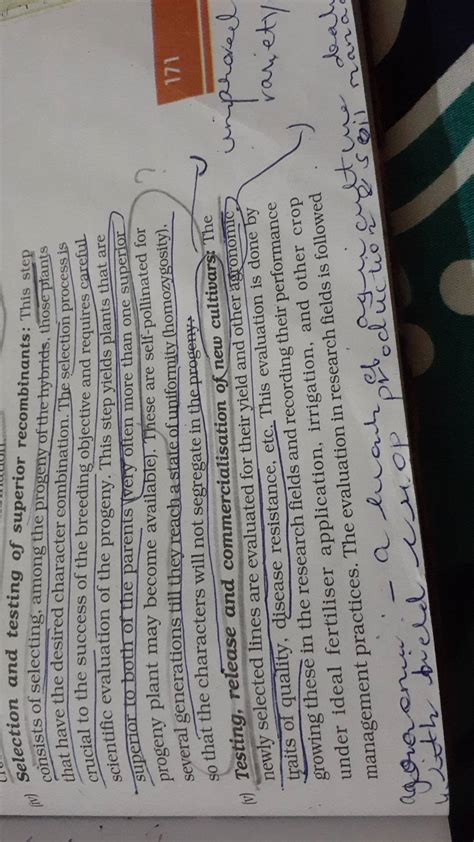 (iv) Selection and testing of superior recombinants: This step
consists of selecting, among the progeny of the hybrids, those plants
that have the desired character combination. The selection process is
crucial to the success of the breeding objective and requires careful
scientific evaluation of the progeny. This step yields plants that are
superior to both of the parents (very often more than one superior
progeny plant may become available). These are self-pollinated for
several generations till they reach a state of uniformity (homozygosity),
so that the characters will not segregate in the progeny.
(v) Testing, release and commercialisation of new cultivars: The
newly selected lines are evaluated for their yield and other agronomic
traits of quality, disease resistance, etc. This evaluation is done by
growing these in the research fields and recording their performance
under ideal fertiliser application, irrigation, and other crop
management practices. The evaluation in research fields is followed
171
improved
variety
agronomic - a branch of agriculture deals
with field crop production & soil mana